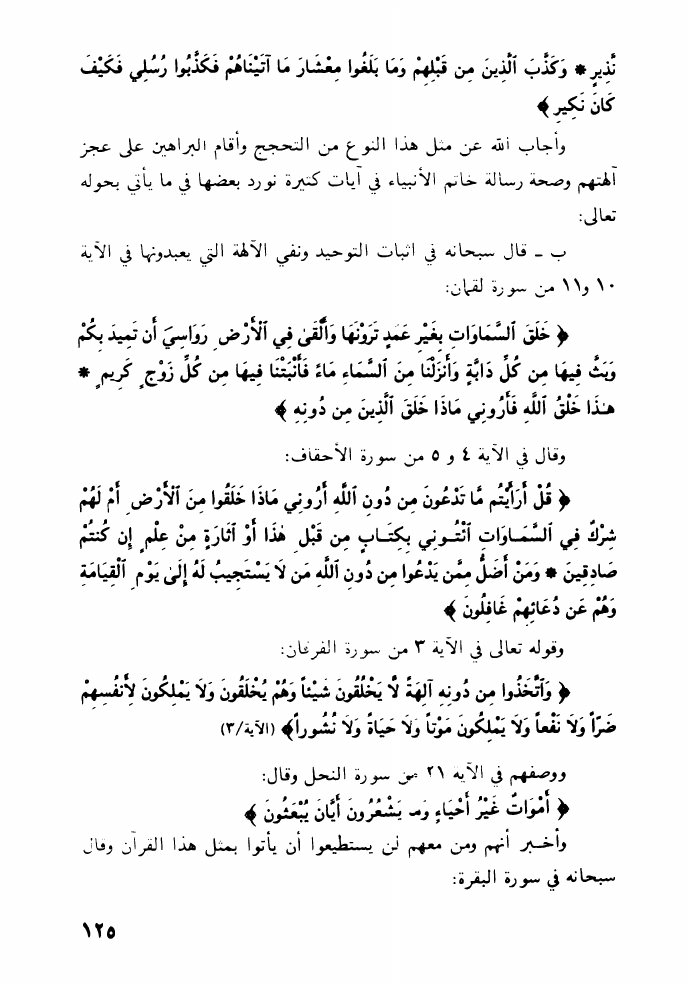 نَّذِيرٍ * وَكَذَّبَ ٱلَّذِينَ مِن قَبْلِهِمْ وَمَا بَلَغُوا مِعْشَارَ مَا آتَيْنَاهُمْ فَكَذَّبُوا رُسُلِي فَكَيْفَ
كَانَ نَكِيرِ ﴾
وأجاب الله عن مثل هذا النوع من التحجج وأقام البراهين على عجز
آلهتهم وصحة رسالة خاتم الأنبياء في آيات كثيرة نورد بعضها في ما يأتي بحوله
تعالى:
ب ـ قال سبحانه في اثبات التوحيد ونفي الآلهة التي يعبدونها في الآية
١٠ و١١ من سورة لقمان:
﴿ خَلَقَ ٱلسَّمَاوَاتِ بِغَيْرِ عَمَدٍ تَرَوْنَهَا وَأَلْقَىٰ فِي ٱلْأَرْضِ رَوَاسِيَ أَن تَمِيدَ بِكُمْ
وَبَثَّ فِيهَا مِن كُلِّ دَابَّةٍ وَأَنزَلْنَا مِنَ ٱلسَّمَاءِ مَاءً فَأَنْبَتْنَا فِيهَا مِن كُلِّ زَوْجٍ كَرِيمٍ *
هٰذَا خَلْقُ اللَّهِ فَأَرُونِي مَاذَا خَلَقَ ٱلَّذِينَ مِن دُونِهِ ﴾
وقال في الآية ٤ و ٥ من سورة الأحقاف:
﴿ قُلْ أَرَأَيْتُم مَّا تَدْعُونَ مِن دُونِ ٱللَّهِ أَرُونِي مَاذَا خَلَقُوا مِنَ ٱلْأَرْضِ أَمْ لَهُمْ
شِرْكٌ فِي ٱلسَّمَـاوَاتِ ٱئْتُـونِي بِكِتَـابٍ مِن قَبْلِ هٰذَا أَوْ أَثَارَةٍ مِنْ عِلْمٍ إِن كُنتُمْ
صَادِقِينَ * وَمَنْ أَضَلُّ مِمَّن يَدْعُوا مِن دُونِ ٱللَّهِ مَن لَا يَسْتَجِيبُ لَهُ إِلَىٰ يَوْمِ ٱلْقِيَامَةِ
وَهُمْ عَن دُعَائِهِمْ غَافِلُونَ ﴾
وقوله تعالى في الآية ٣ من سورة الفرقان:
﴿ وَٱتَّخَذُوا مِن دُونِهِ آلِهَةً لَّا يَخْلُقُونَ شَيْئاً وَهُمْ يُخْلَقُونَ وَلَا يَمْلِكُونَ لِأَنفُسِهِمْ
ضَرّاً وَلَا نَفْعاً وَلَا يَمْلِكُونَ مَوْتاً وَلَا حَيَاةً وَلَا نُشُوراً﴾ (الآية/٣)
ووصفهم في الآية ٢١ من سورة النحل وقال:
﴿ أَمْوَاتٌ غَيْرُ أَحْيَاءٍ وَمَا يَشْعُرُونَ أَيَّانَ يُبْعَثُونَ ﴾
وأخـبر أنهم ومن معهم لن يستطيعوا أن يأتوا بمثل هذا القرآن وقال
سبحانه في سورة البقرة:
١٢٥